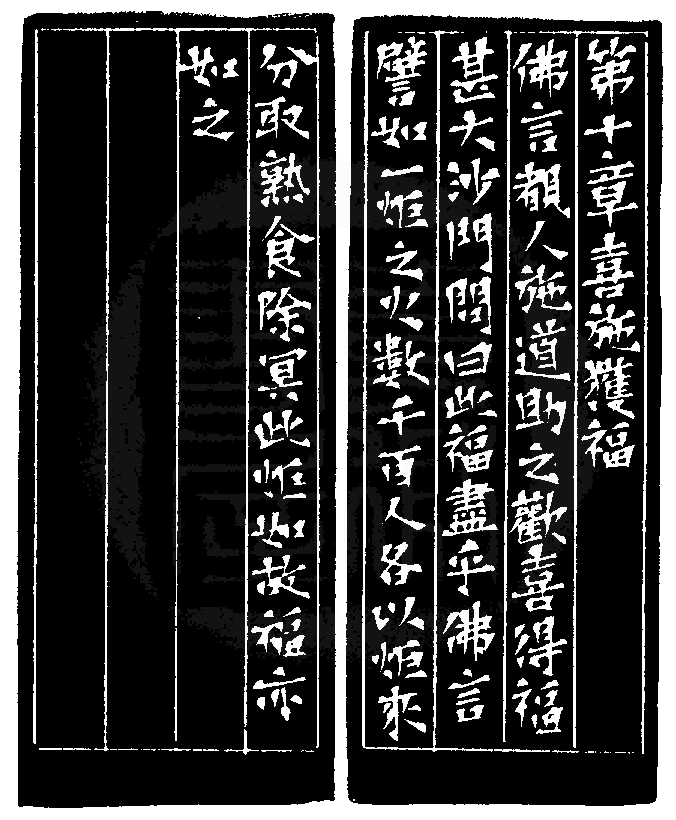 第十章喜施獲福
佛言覩人施道助之歡喜得福
甚大沙門問曰此福盡乎佛言
譬如一炬之火數千百人各以炬來
分取熟食除冥此炬如故福亦
如之